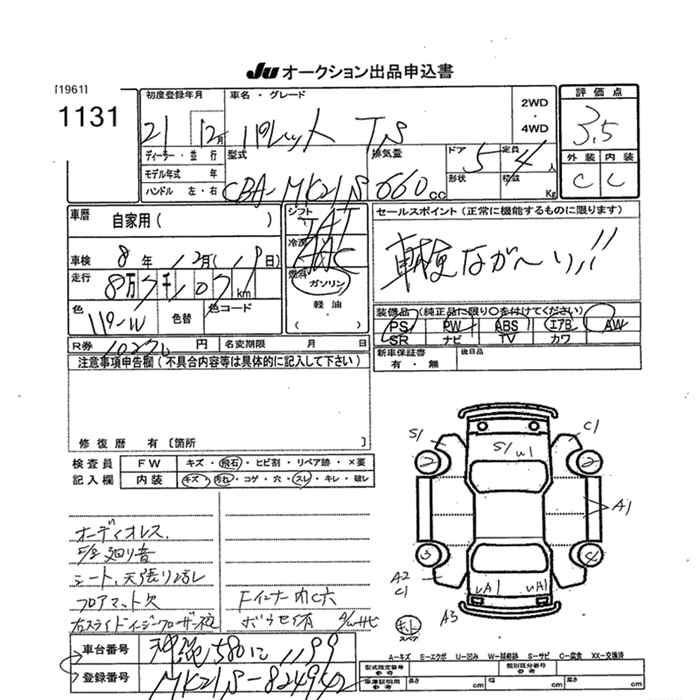 Ju オークション出品申込書
[1961]
1131
初度登録年月
21 12月
車名・グレード
パレット TS
2WD
・
4WD
評価点
3.5
外装 内装
C C
ディーラー・並行
モデル年式 年
ハンドル 左・右
型式
CBA-MK21S
排気量
660cc
ドア 5
形状
定員 4人
積載 Kg
車歴 自家用( )
車検 8年 12月(19日)
走行 8万7千107km
色 パールW
色替
色コード
シフト
冷房 AAC
燃料
ガソリン
・
軽油
( )
セールスポイント(正常に機能するものに限ります)
車検なが〜い!!
装備品(純正品に限り○を付けてください)
PS PW ABS エアB AW
SR ナビ TV カワ
新車保証書
有・無
後日品
R券 10270円
名変期限 月 日
注意事項申告欄(不具合内容等は具体的に記入して下さい)
修復歴 有〔箇所 〕
検査員
記入欄
FW キズ・飛石・ヒビ割・リペア跡・×要
内装 キズ・汚れ・コゲ・穴・スレ・キレ・破レ
オーディオレス
シート、天張り
フロアマット欠
右スライドイージークローザー
Fインナー
S1
C1
S1
U1
2
2
A1
A2
C1
UA1
UA1
A3
スペア
車台番号
登録番号
580 に 1199
MK21S-824942
A-キズ E-エクボ U-凹み W-補修跡 S-サビ C-腐食 XX-交換済
型式指定番号
参考
類別区分番号
参考
車庫証明用
参考
長さ cm
幅 cm
高さ cm